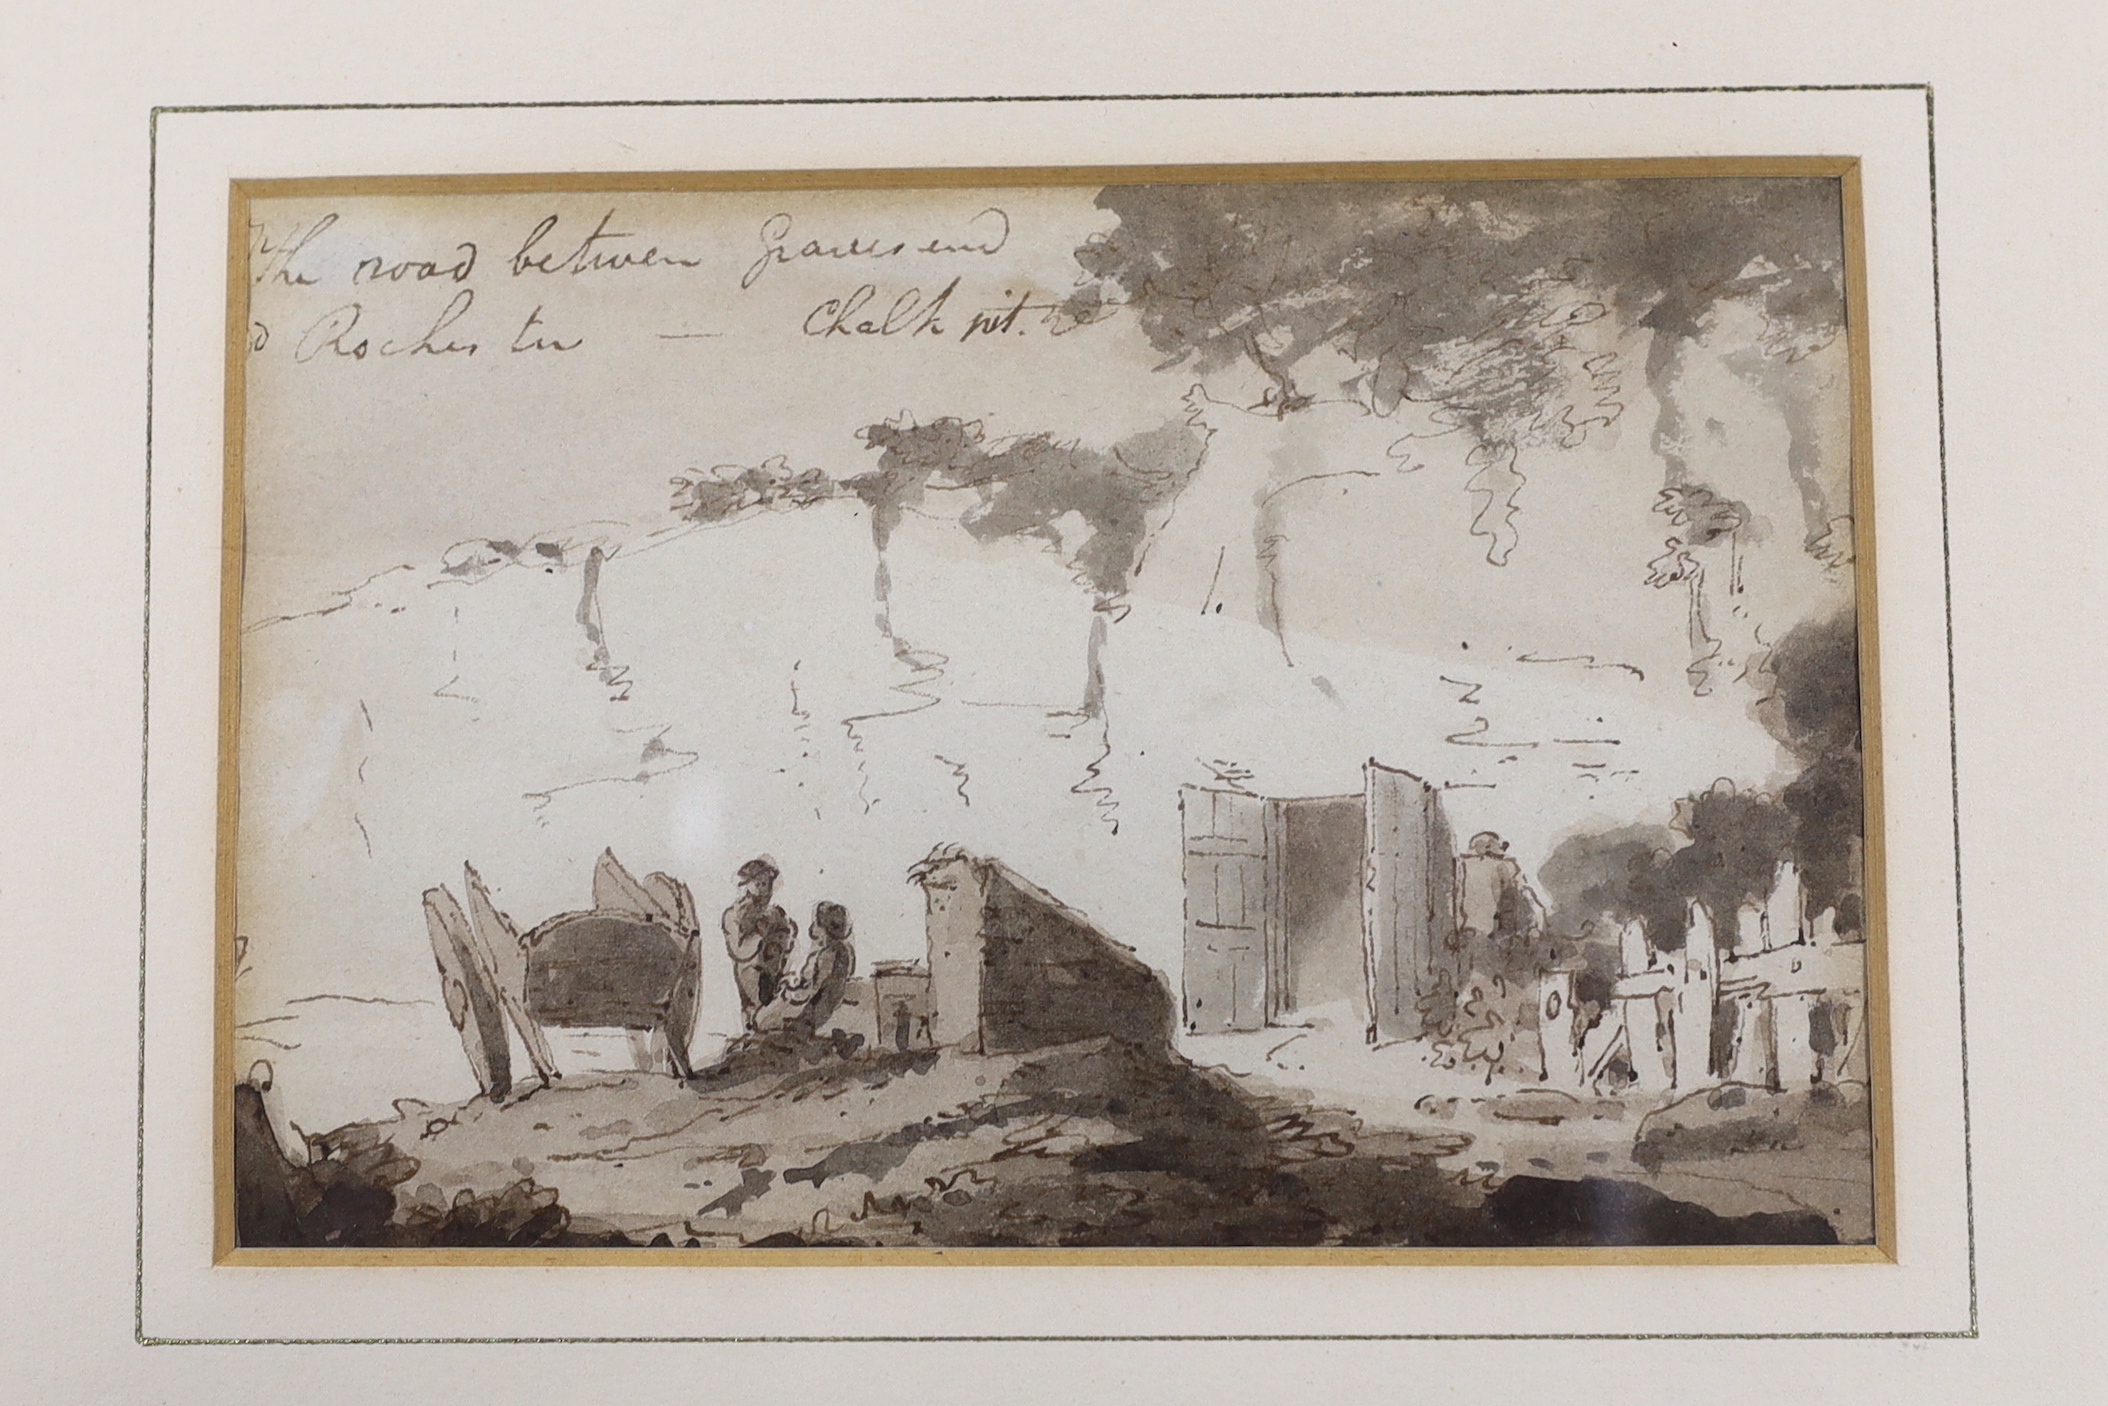 The road between Gravesend
d Rochester — Chalk pit.